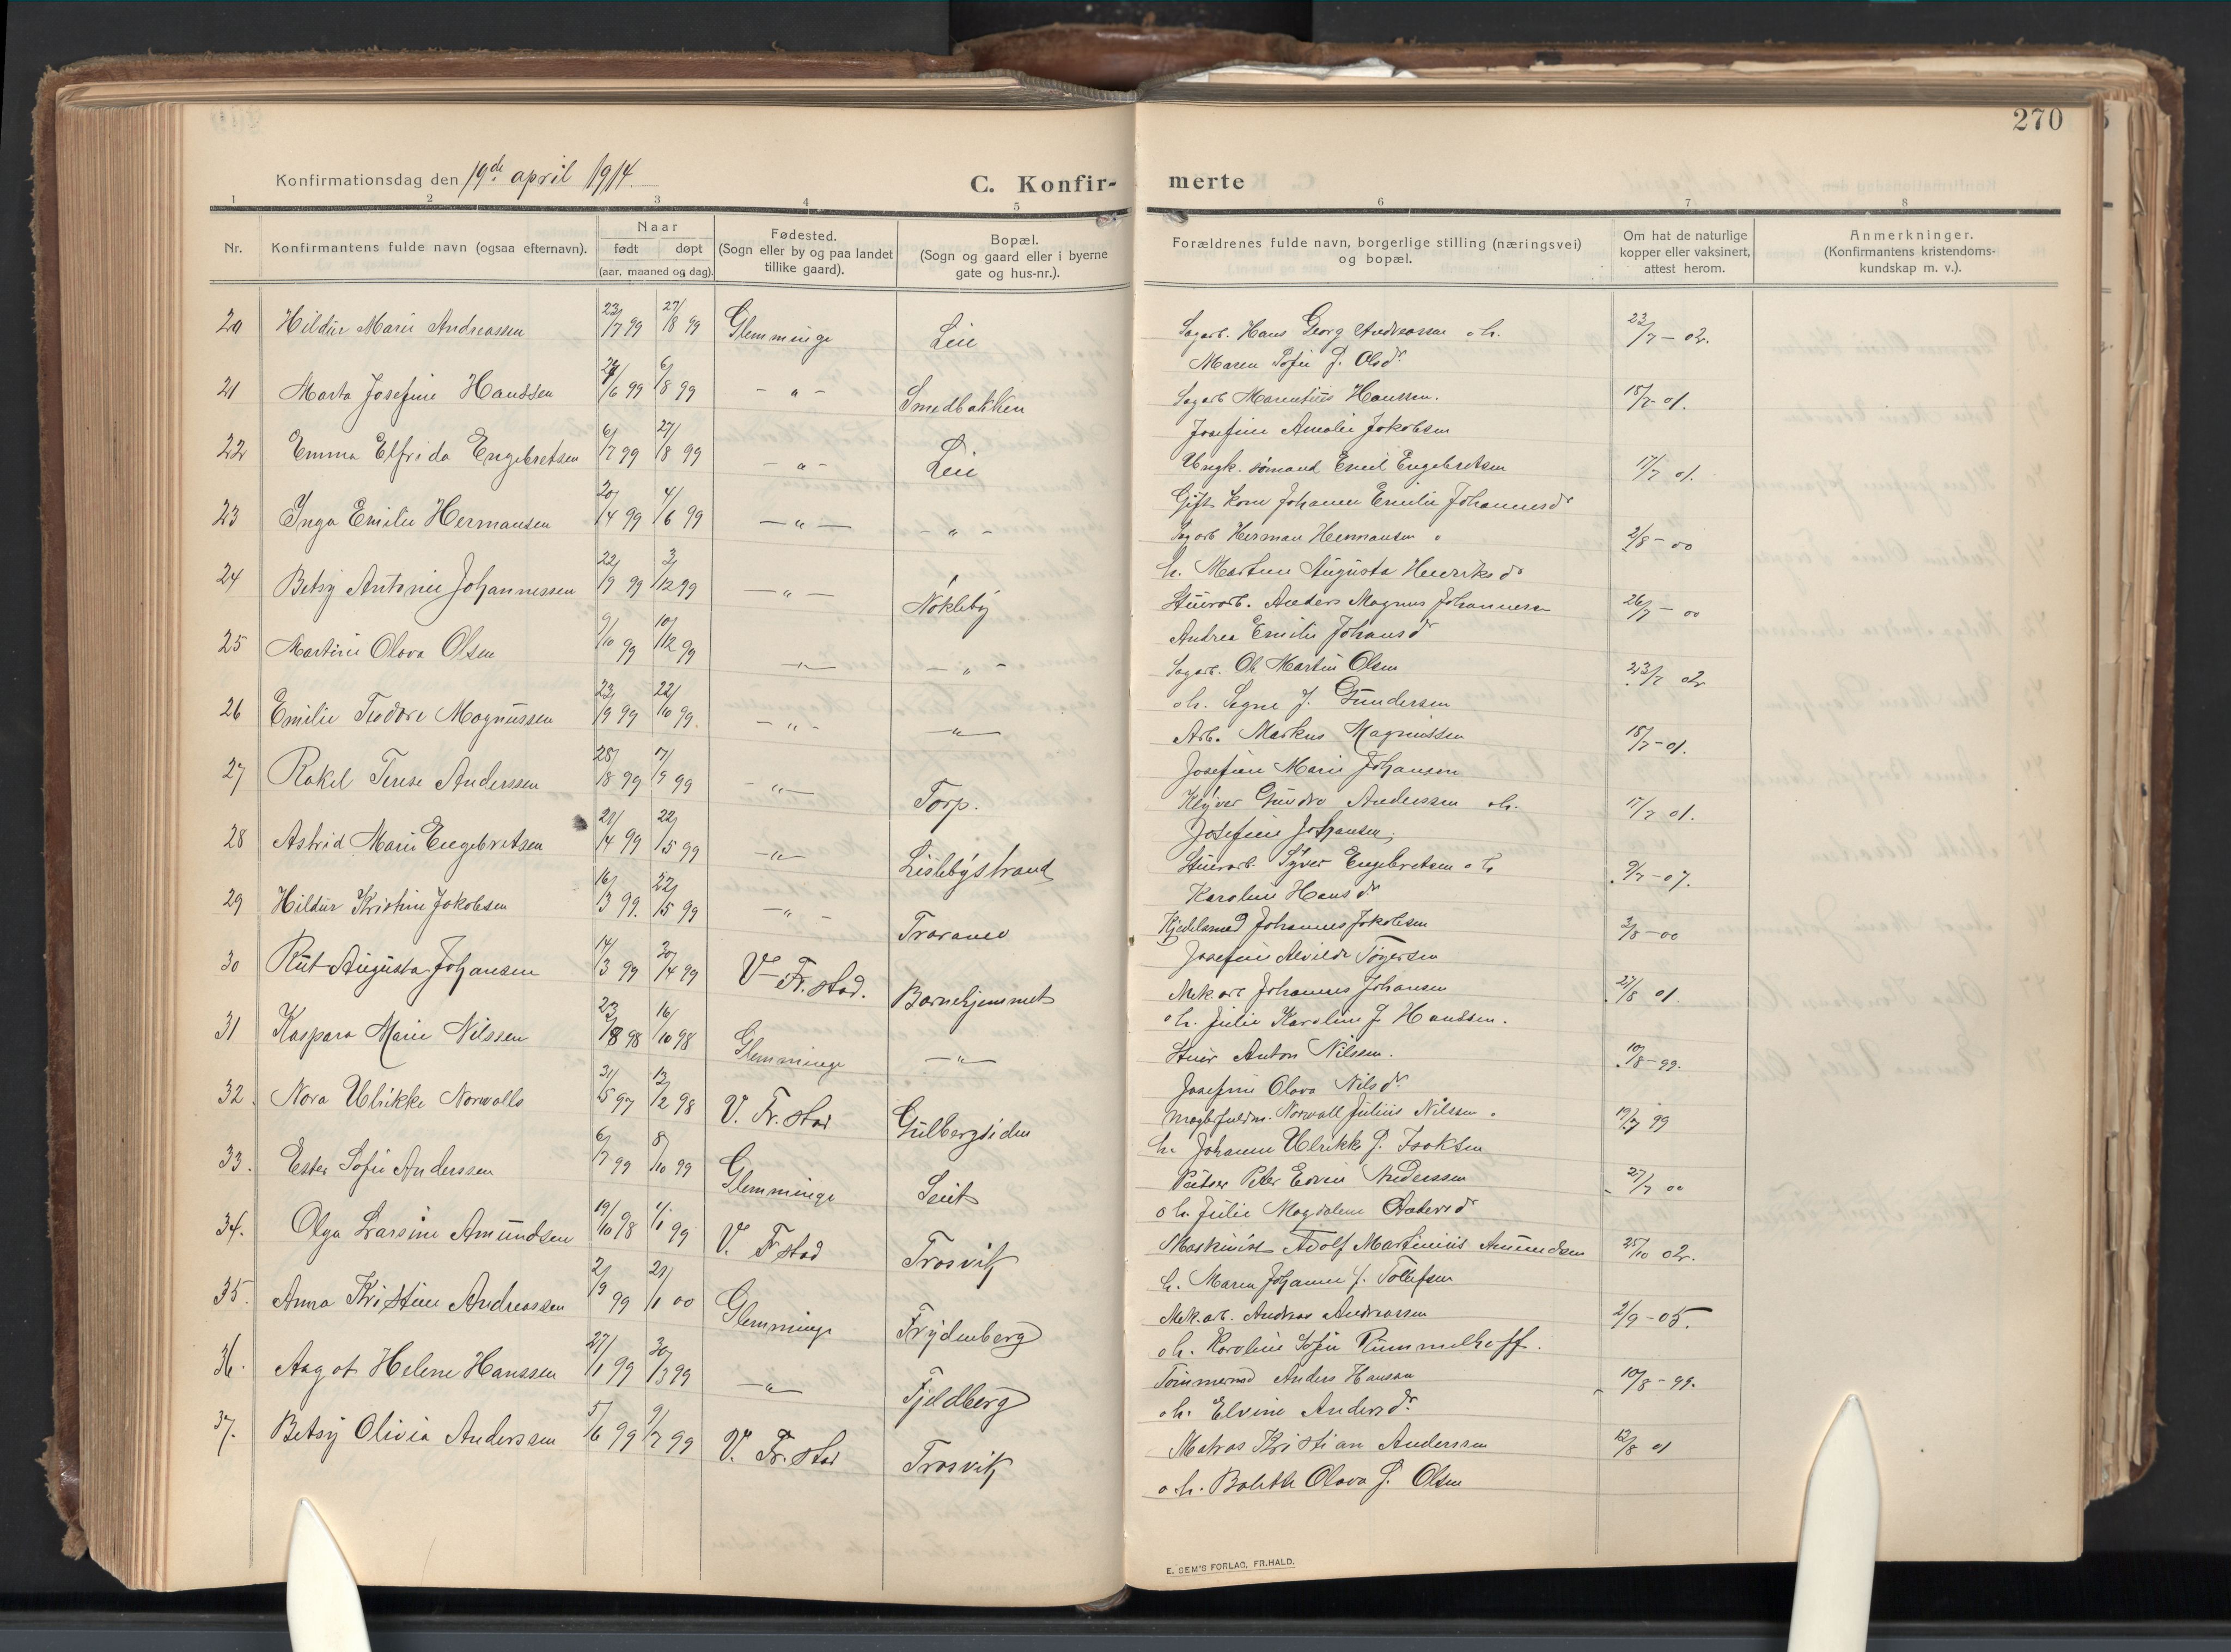 270
Konfirmationsdag den 19de april 1914.
C. Konfir-
merte
1 2 3 4 5 6 7 8
Nr.
Konfirmantens fulde navn (ogsaa efternavn).
Naar
født døpt
(aar, maaned og dag).
Fødested.
(Sogn eller by og paa landet
tillike gaard).
Bopæl.
(Sogn og gaard eller i byerne
gate og hus-nr.).
Forældrenes fulde navn, borgerlige stilling (næringsvei)
og bopæl.
Om hat de naturlige
kopper eller vaksinert,
attest herom.
Anmerkninger.
(Konfirmantens kristendoms-
kundskap m. v.).
20 Hildur Marie Andreassen 23/7 99 27/8 99 Glemminge Leie Sagarb. Hans Georg Andreassen o.h. 23/7 - 02.
Maren Sofie J. Olsdr.
21 Marta Josefine Hanssen /6 99 6/8 99 - " - Smedbakken Sagarb Marentius Hanssen. 18/7 - 01.
Josefine Amalie Jakobsen
22 Emma Elfrida Engebretsen 6/7 99 27/8 99 - " - Leie Ungk. sømand Emil Engebretsen 17/7 01.
Gift kone Johanne Emilie Johannesdr
23 Inga Emilie Hermansen 20/4 99 4/6 99 - " - - " - Sagarb Herman Hermansen o 2/8 - 00
h. Martine Augusta Henriksdr
24 Betsy Antonie Johannessen 22/9 99 3/12 99 - " - Nøkleby Stuerarb. Anders Magnus Johannesen 26/7 - 00
Andrea Emilie Johansdr
25 Martine Olava Olsen 9/10 99 10/12 99 - " - - " - Sagarb. Ole Martin Olsen 23/7 02
o.h. Signe J. Gundersen
26 Emilie Teodore Magnussen 23/9 99 22/10 99. - " - - " - Arb. Markus Magnussen 18/7 - 01.
Josefine Marie Johansen
27 Rakel Terese Anderssen 28/8 99 17/9 99 - " - Torp. Kløver Gundro Anderssen o.h. 17/7 01.
Josefine Johansen.
28 Astrid Marie Engebretsen 21/4 99 22/5 99 - " - Lislebystrand Stuerarb. Syver Engebretsen o h 9/7 - 07.
Karoline Hansdr
29 Hildur Kristine Jakobsen 16/3 99. 22/5 99 - " - Traraveien Kjedelsmed Johannes Jakobsen 2/8 - 00
Josefine Alvilde Tøgersen
30 Rut Augusta Johansen 14/3 99 30/4 99 V. Fr.stad. Barnehjemmet Mek.arb Johannes Johansen 27/8 01.
o h. Julie Karoline J. Hanssen.
31 Kaspara Marie Nilssen 23/8 98 16/10 98 Glemminge - " - Stuer Anton Nilssen. 10/8 - 99.
Josefine Olava Nilsdr.
32. Nora Ulrikke Norwalls 31/5 97 13/2 98 V. Fr.stad Gulbergsiden Norwall Julius Nilssen. 19/7 99
h. Johanne Ulrikke J. Isaksen
33. Ester Sofie Anderssen 6/7 99 8/10 99 Glemminge Leiet Pudser Peter Edvin Anderssen 27/7 00
o h. Julie Magdalene Andersdr
34. Olga Larsine Amundsen 19/10 98 1/1 99 V. Frstad Trosvik Maskinist Adolf Martinius Amundsen 25/10 02.
h. Maren Johanne J. Tollefsen
35. Anna Kristine Andreassen 2/9 99 21/1 00 Glemminge Frydenberg Mek.arb. Andreas Andreassen 2/9 - 05.
o h. Karoline Sofie Rummelhoff.
36. Aagot Helene Hanssen 27/1 99 30/3 99 - " - Fjeldberg Tømmermd Anders Hanssen 10/8 - 99.
o h. Elvine Andersdr.
37. Betsy Olivia Anderssen 5/6 99 9/7 99 V. Fr.stad Trosvik Matros Kristian Anderssen 12/8 01
o. h. Bolette Olava J. Olsen
E. SEM'S FORLAG, FR.HALD.